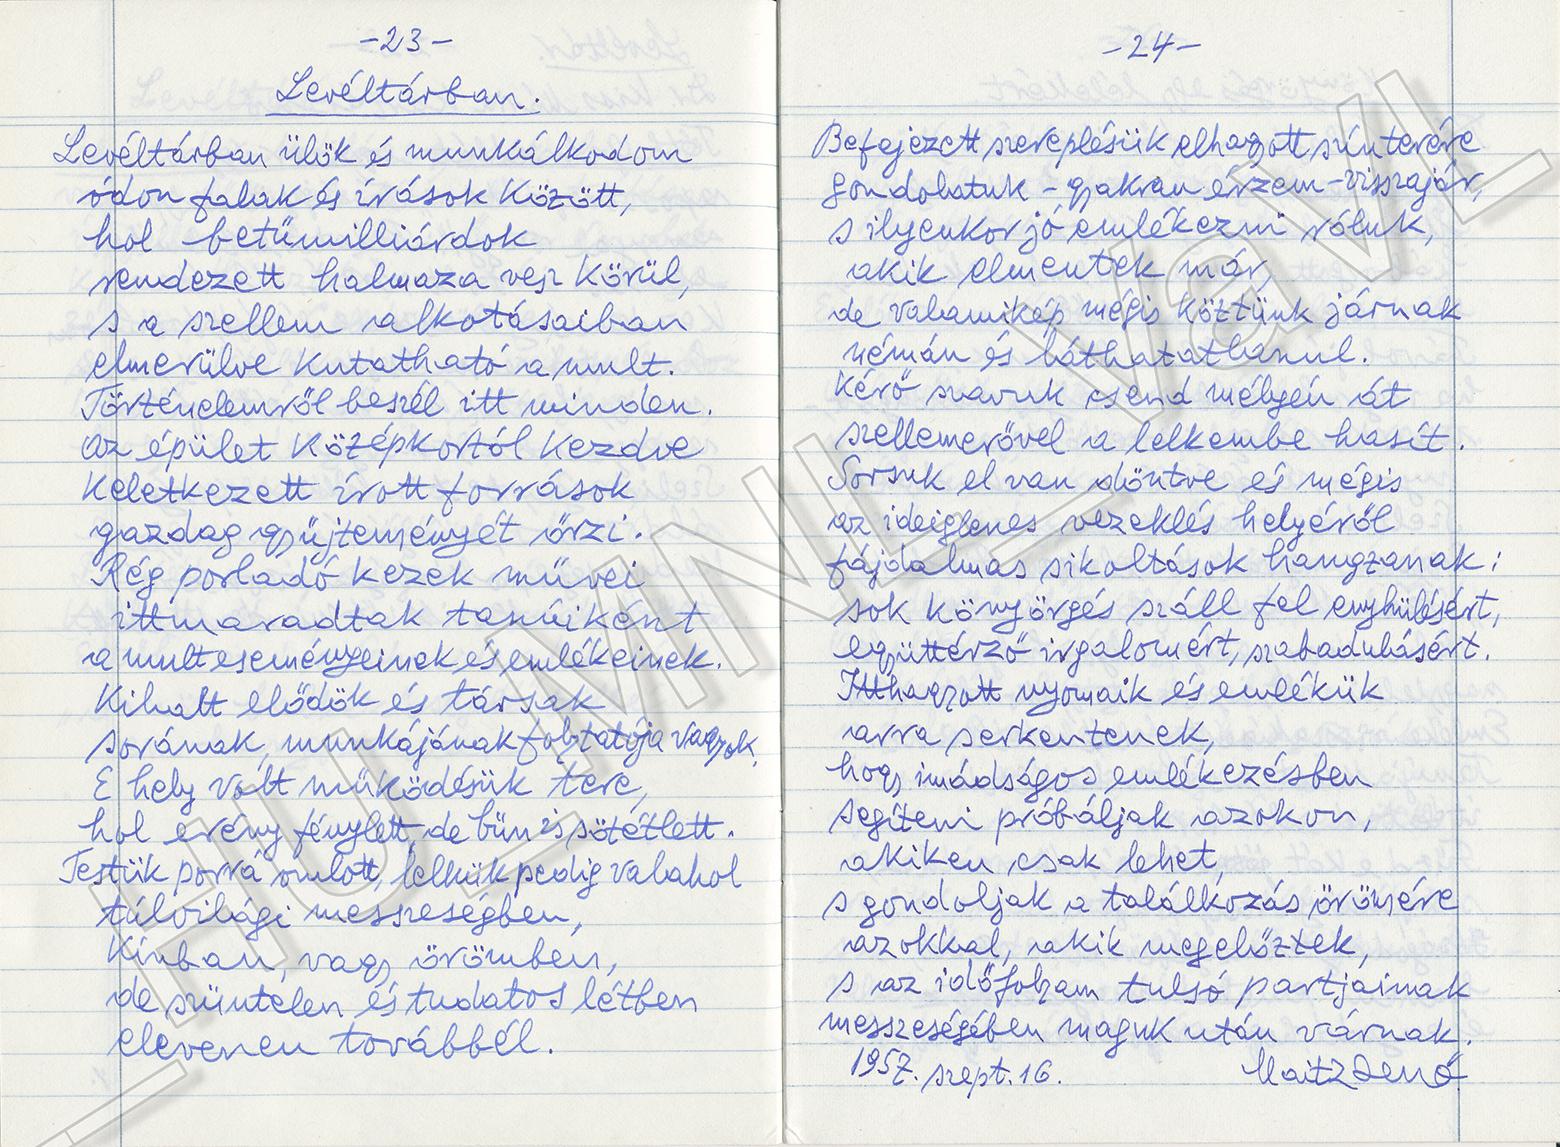 -23-
Levéltárban.
Levéltárban ülök és munkálkodom
ódon falak és írások között,
hol betűmilliárdok
rendezett halmaza vesz körül,
s a szellem alkotásaiban
elmerülve kutatható a mult.
Történelemről beszél itt minden.
Az épület középkortól kezdve
keletkezett írott források
gazdag gyűjteményét őrzi.
Rég porladó kezek művei
ittmaradtak tanúiként
a mult eseményeinek és emlékeinek.
Kihalt elődök és társak
sorának, munkájának folytatója vagyok.
E hely volt működésük tere,
hol erény fénylett, de bűn is sötétlett.
Testük porrá omlott, lelkük pedig valahol
túlvilági messzeségben,
kínban, vagy örömben,
de szüntelen és tudatos létben
elevenen továbbél.
-24-
Befejezett szereplésük elhagyott színterére
gondolatuk - gyakran érzem - visszajár,
s ilyenkor jó emlékezni róluk,
akik elmentek már,
de valamikép mégis köztünk járnak
némán és láthatatlanul.
Kérő szavuk csend mélyén át
szellemerővel a lelkembe hasít.
Sorsuk el van döntve és mégis
az ideiglenes vezeklés helyéről
fájdalmas sikoltások hangzanak:
sok könyörgés száll fel enyhülésért,
együttérző irgalomért, szabadulásért.
Itthagyott nyomaik és emlékük
arra serkentenek,
hogy imádságos emlékezésben
segíteni próbáljak azokon,
akiken csak lehet,
s gondoljak a találkozás örömére
azokkal, akik megelőztek,
s az időfolyam tulsó partjainak
messzeségében maguk után várnak.
1957. szept. 16. Maitz Jenő
HU_MNL_VaVL_